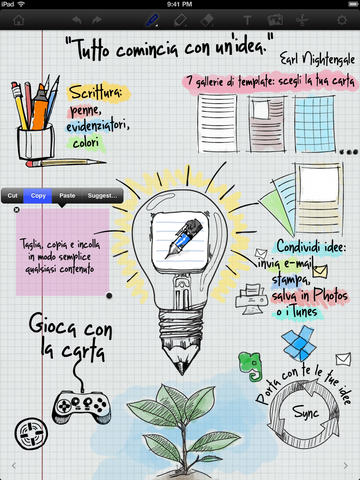 iPad
9:41 PM
"Tutto comincia con un'idea."
Earl Nightengale
Scrittura:
penne,
evidenziatori,
colori
7 gallerie di template: scegli la tua carta
Cut
Copy
Paste
Suggest...
Taglia, copia e incolla
in modo semplice
qualsiasi contenuto
Condividi idee:
invia e-mail
stampa,
salva in Photos
o iTunes
Gioca con
la carta
Porta con te le tue idee
Sync